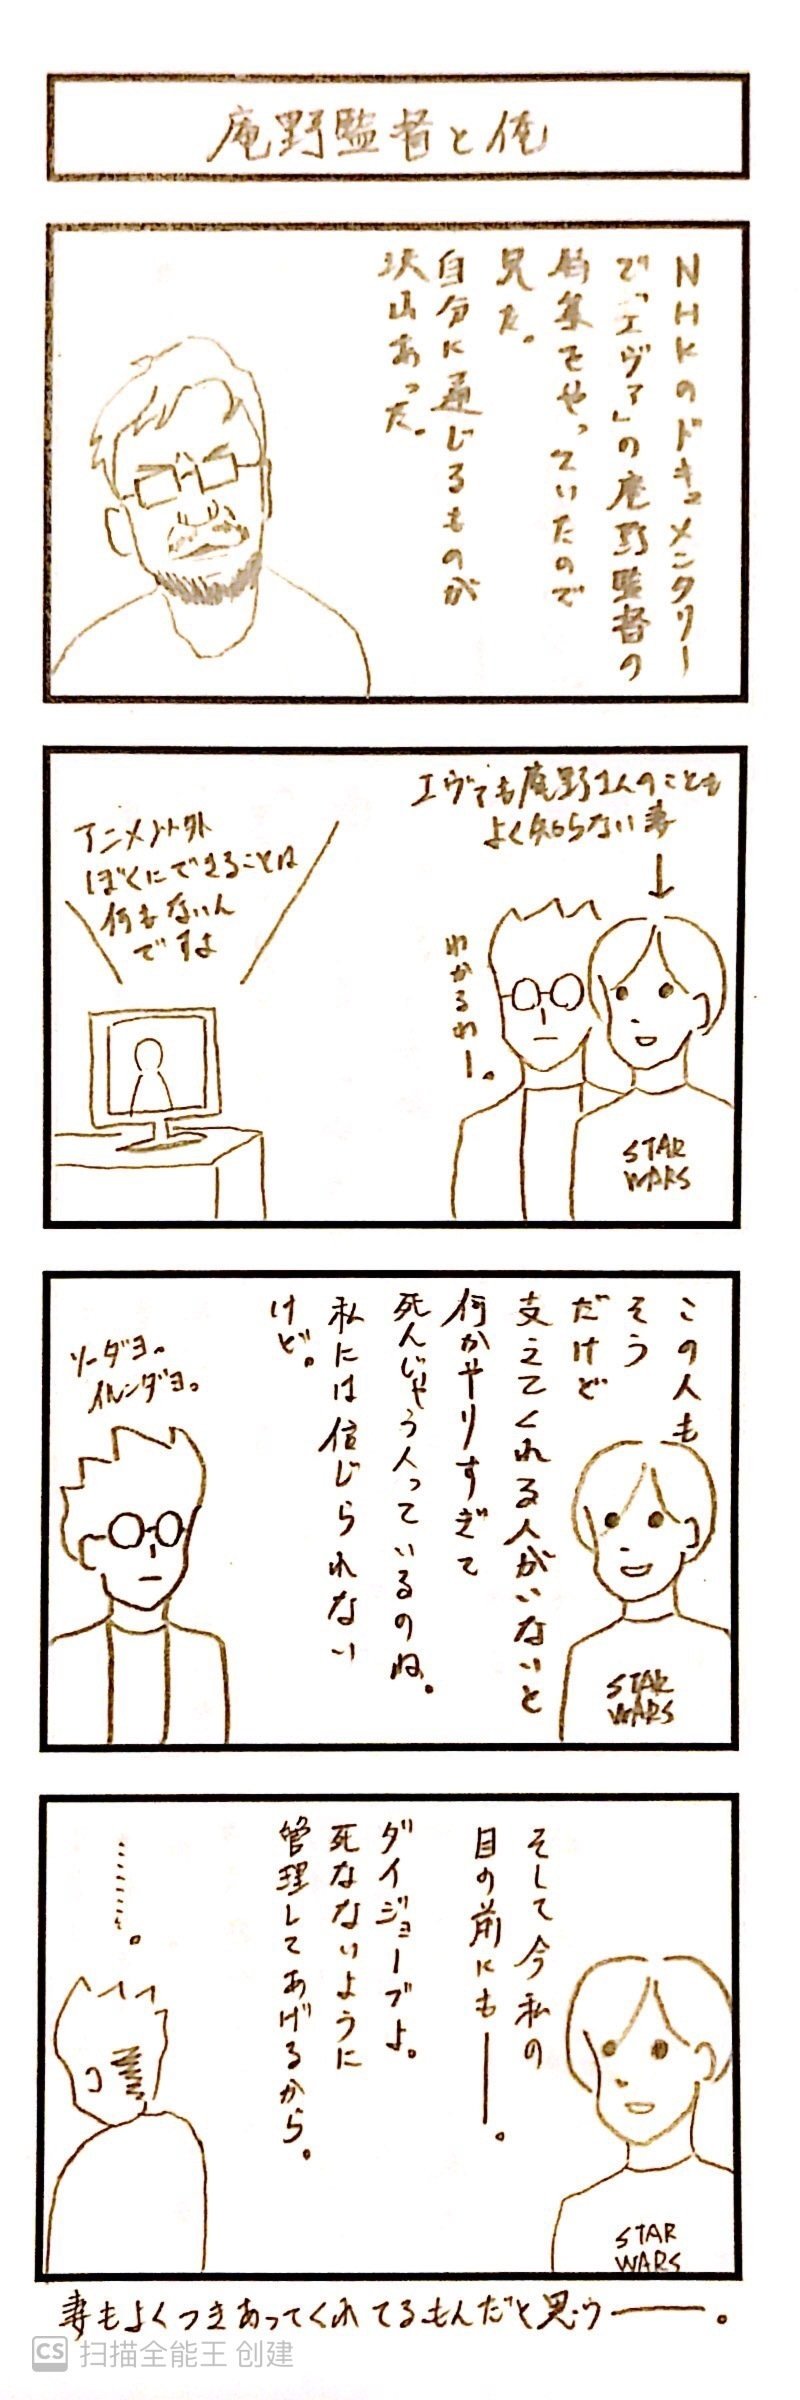 庵野監督と俺
NHKのドキュメンタリー
で「エヴァ」の庵野監督の
特集をやっていたので
見た。
自分に通じるものが
沢山あった。
エヴァも庵野さんのことも
よく知らない妻
アニメ以外
ぼくにできることは
何もないん
ですよ
わかるわー。
STAR
WARS
この人も
そう
だけど
支えてくれる人がいないと
何かやりすぎて
死んじゃう人っているのね。
私には信じられない
けど。
ソーダヨ。
イルンダヨ。
STAR
WARS
そして今私の
目の前にも――。
ダイジョーブよ。
死なないように
管理してあげるから。
………。
STAR
WARS
妻もよくつきあってくれてるもんだと思う――。
CS 扫描全能王 创建